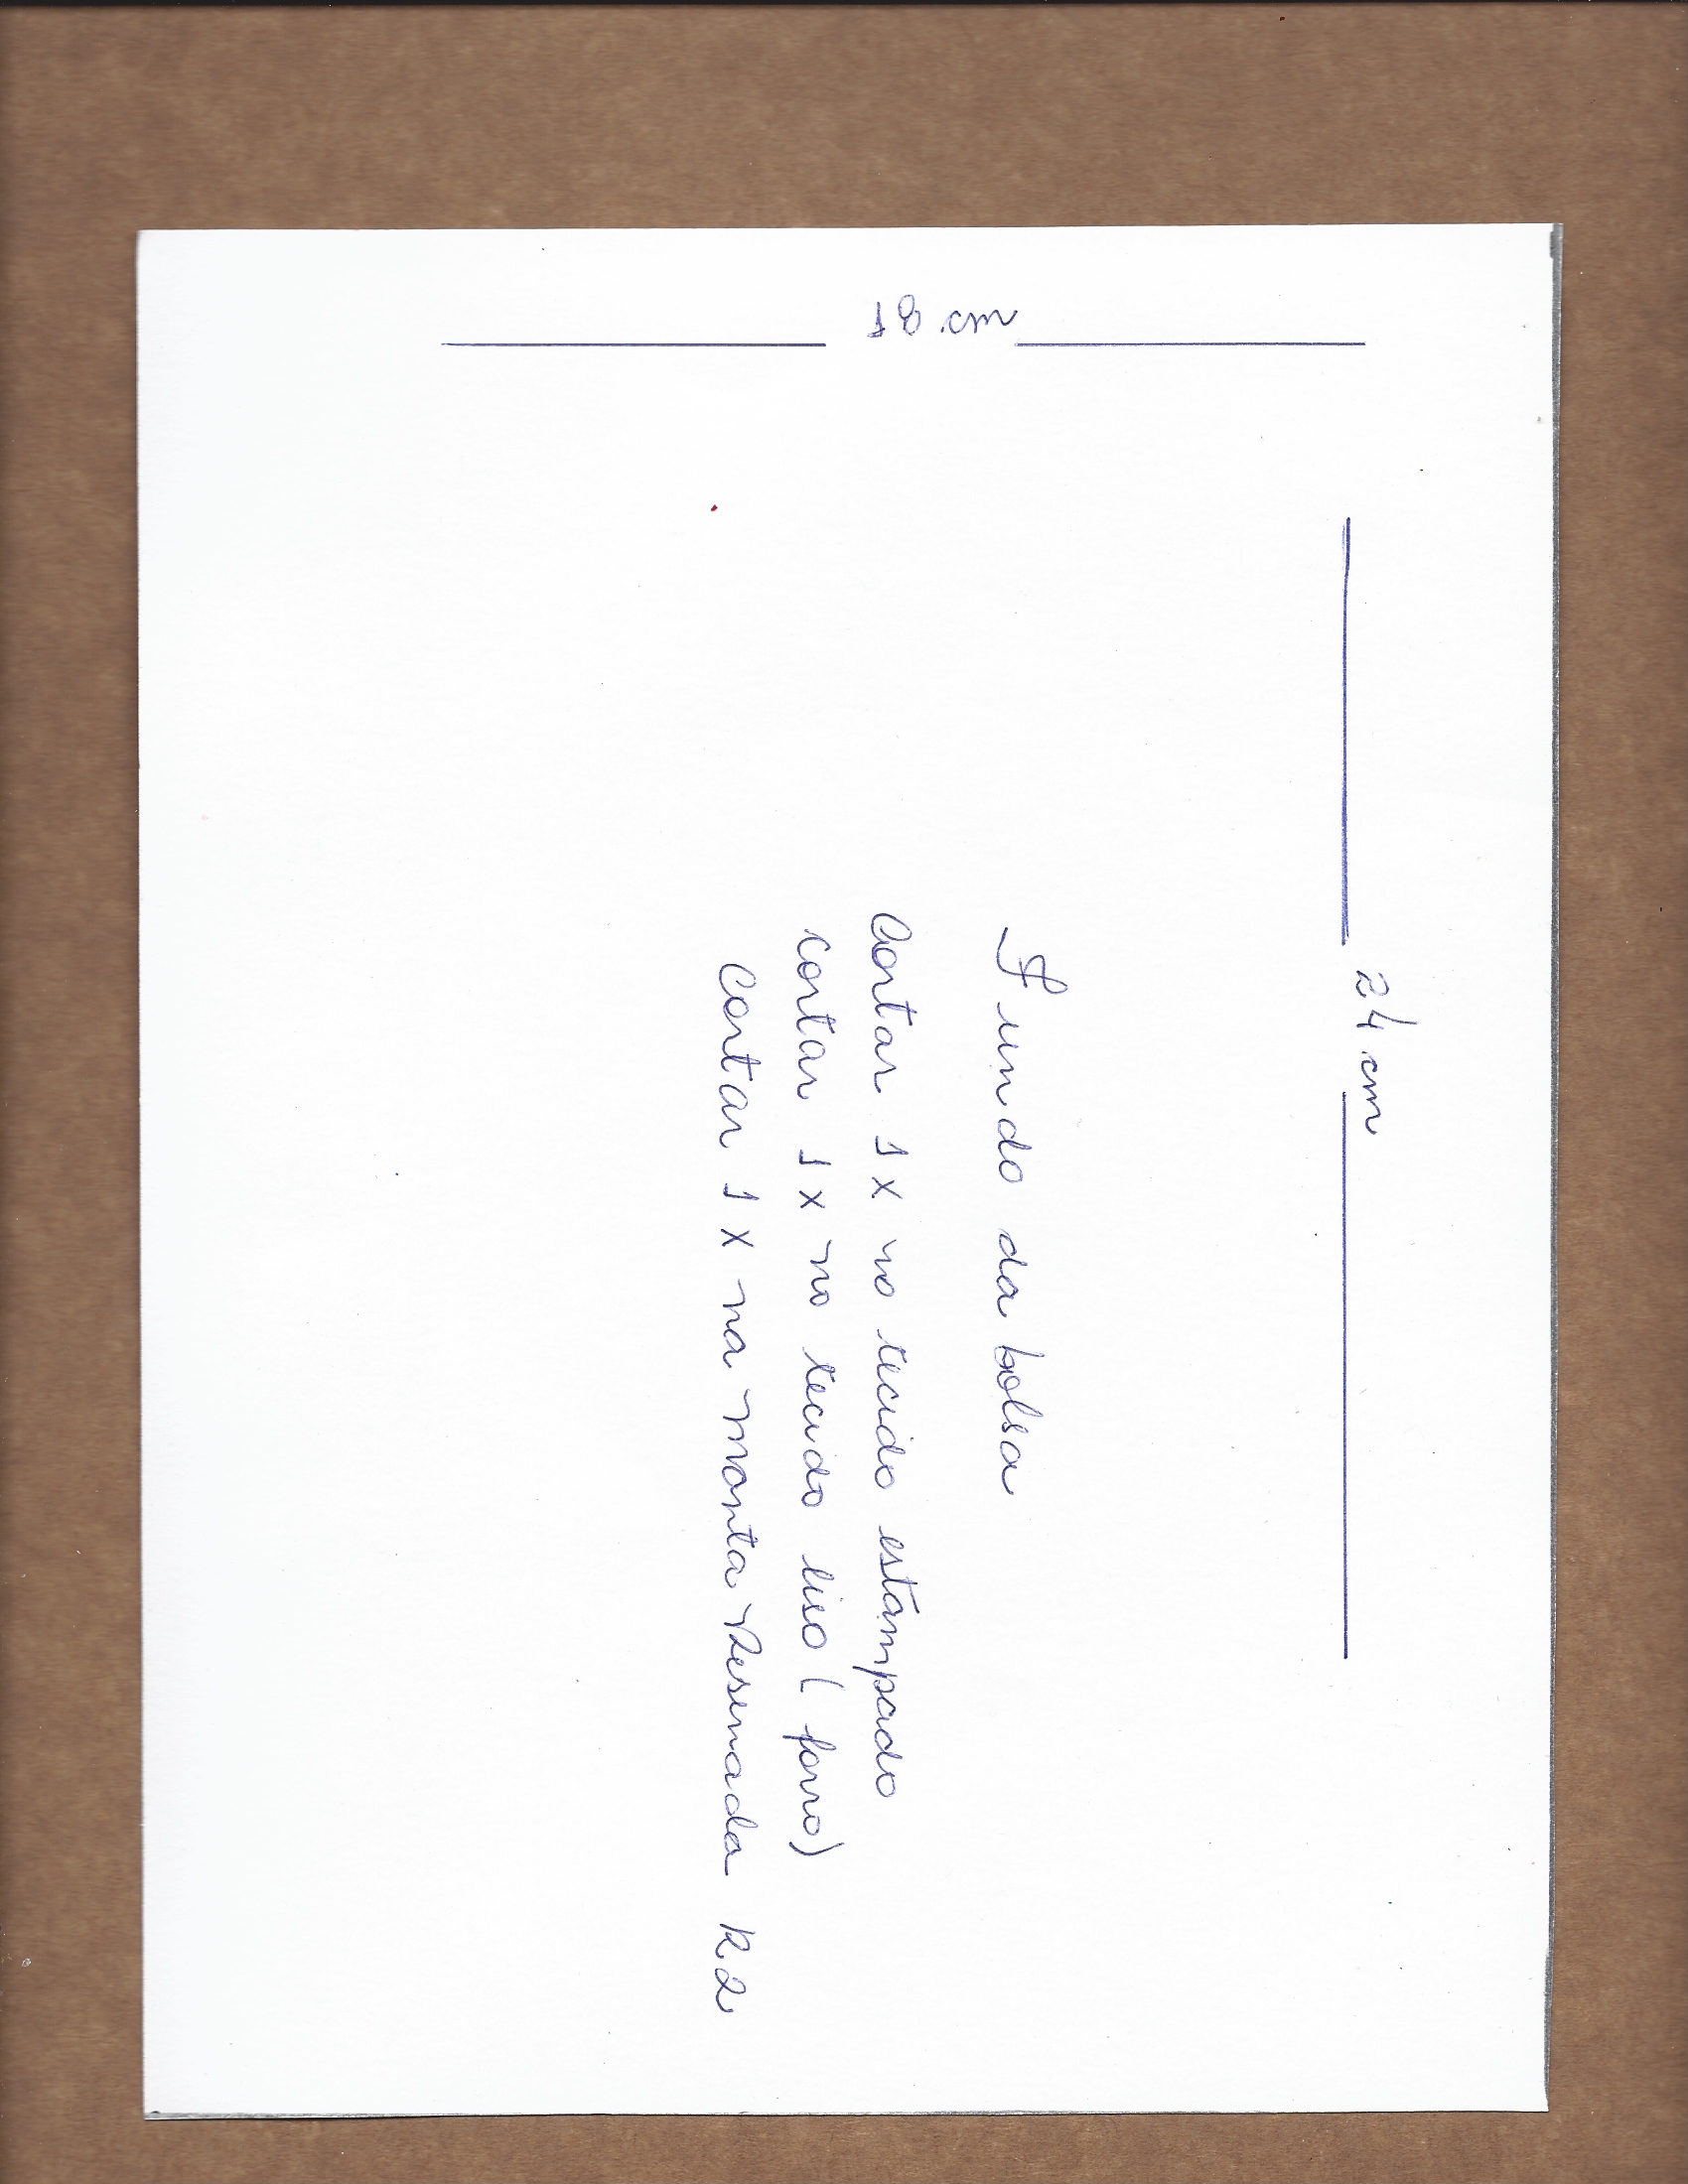 18 cm
24 cm
Fundo da bolsa
Cortar 1 x no tecido estampado
cortar 1 x no tecido liso ( forro)
Cortar 1 x na manta Resinada R2